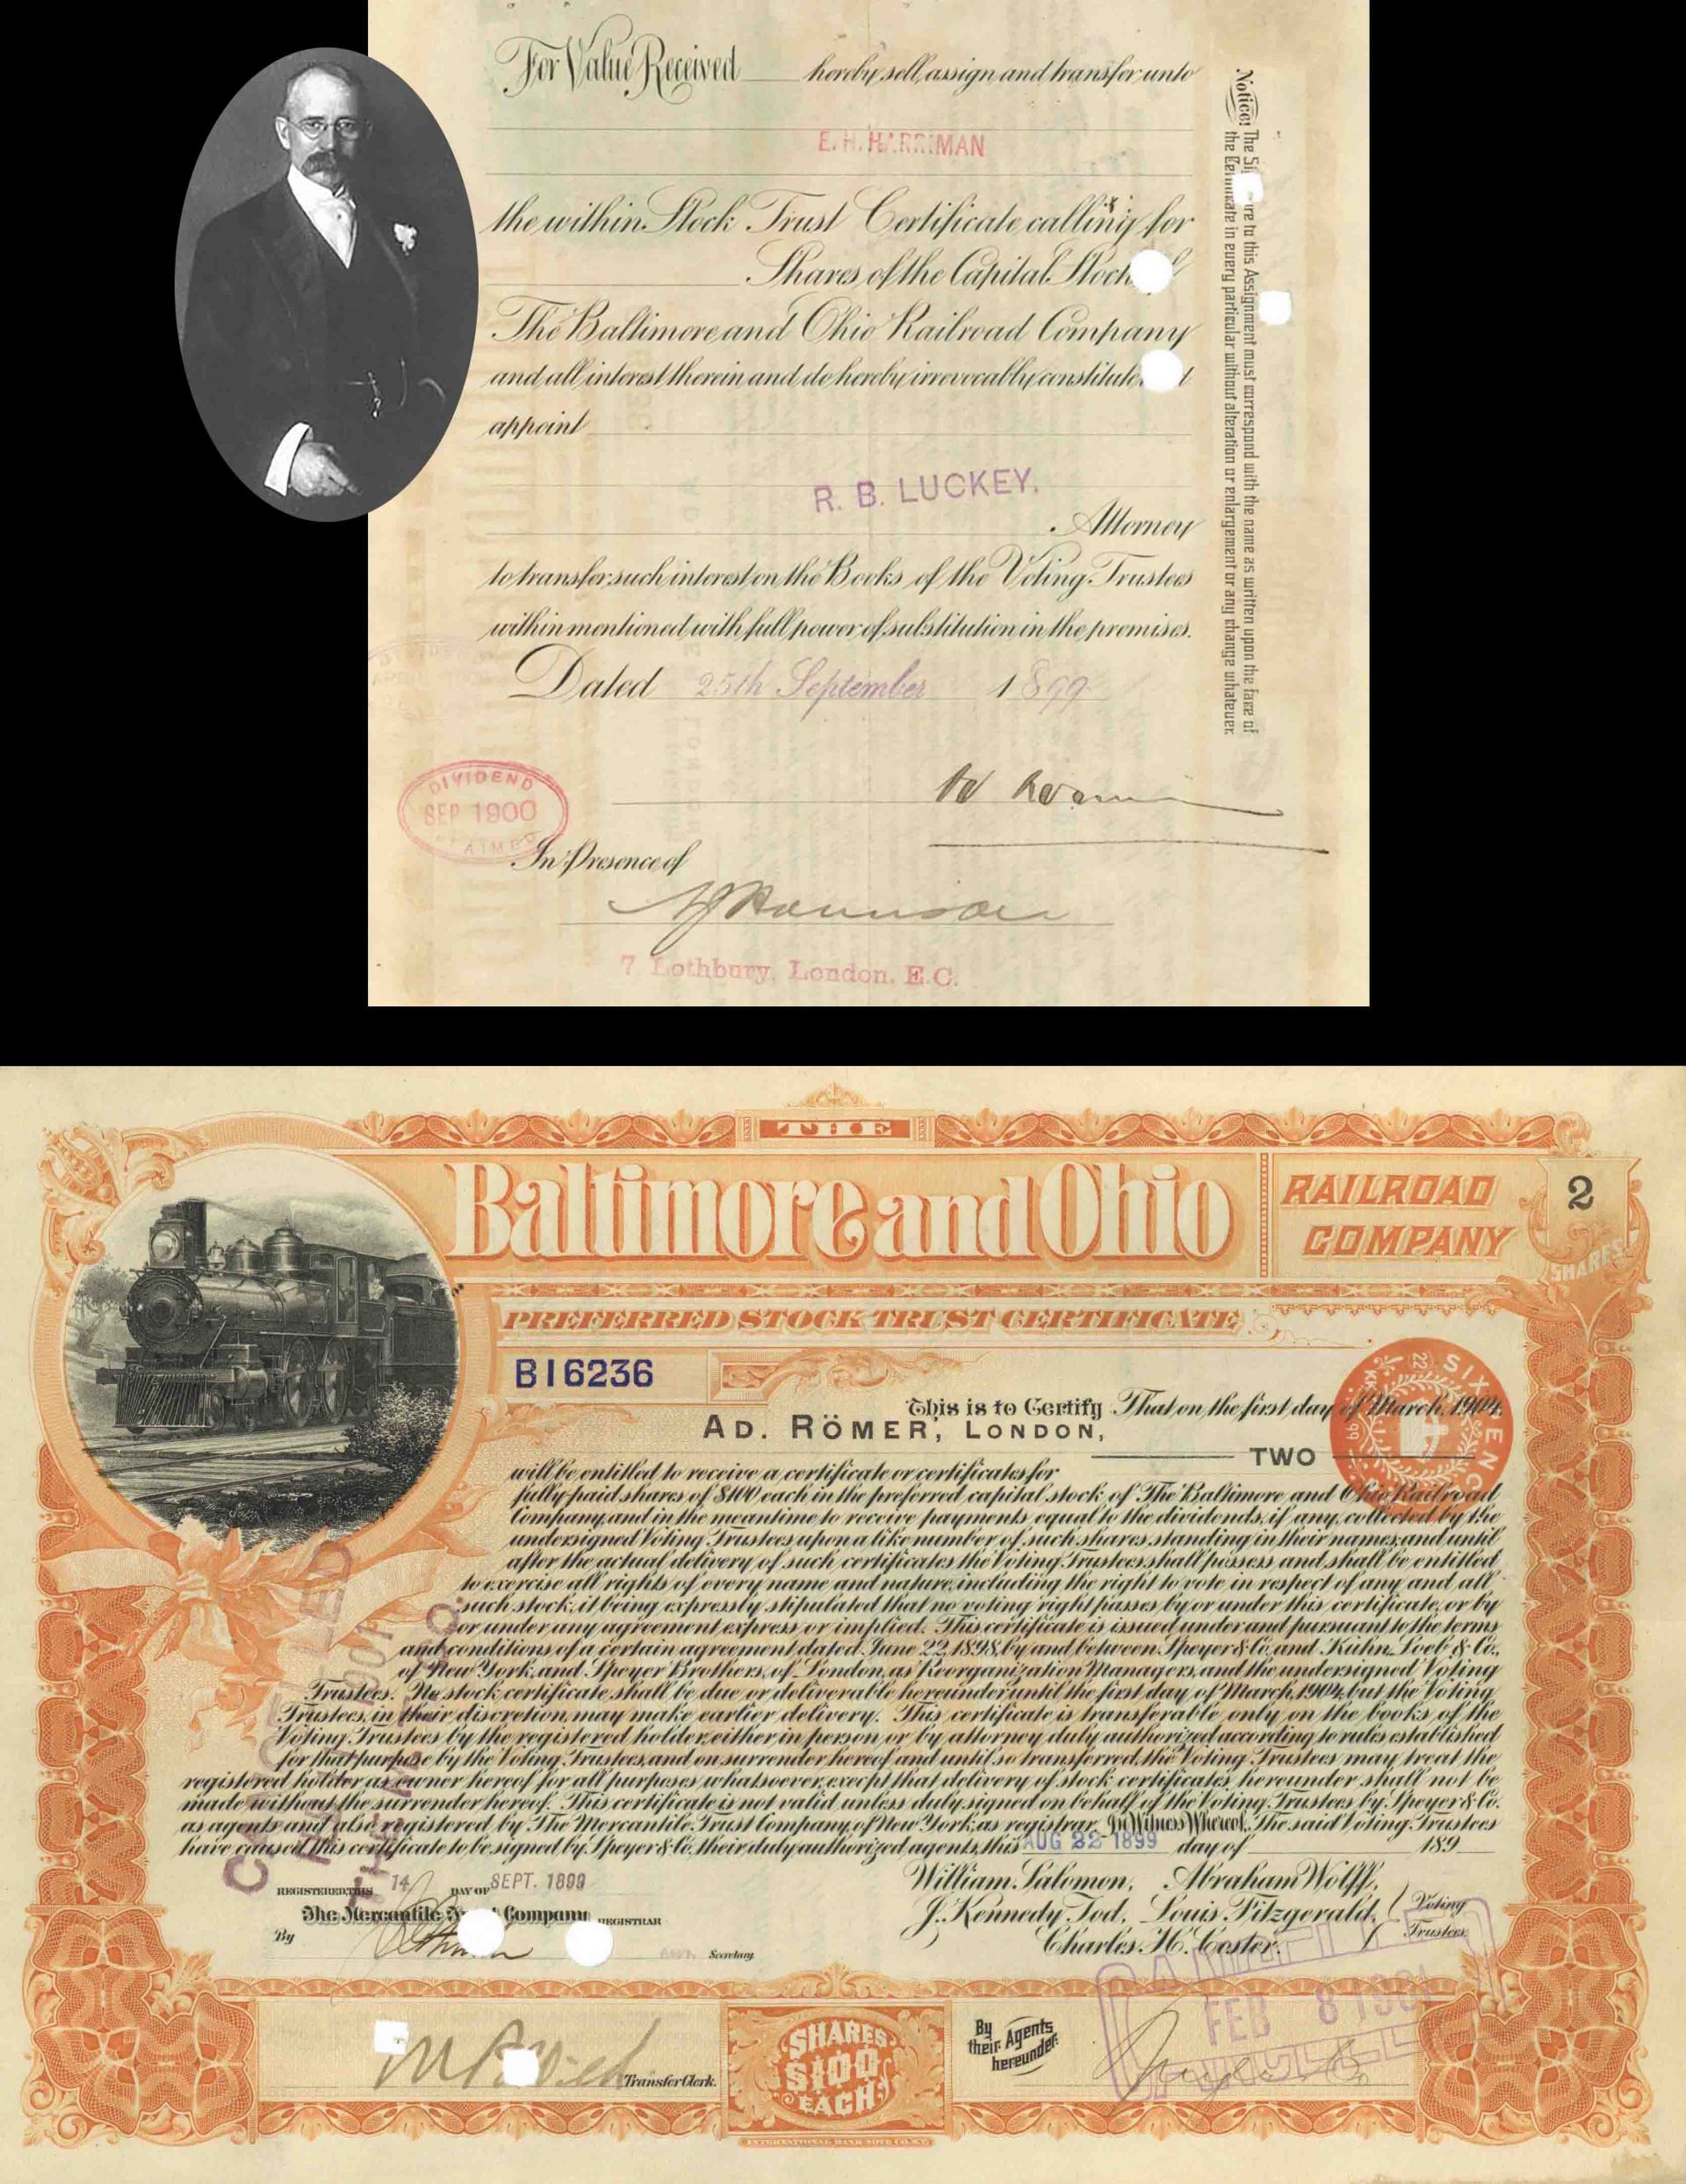 For Value Received hereby sell, assign and transfer unto
E. H. HARRIMAN
the within Stock Trust Certificate calling for
Shares of the Capital Stock
The Baltimore and Ohio Railroad Company
and all interest therein and do hereby irrevocably constitute
appoint
R. B. LUCKEY.
Attorney
to transfer such interest on the Books of the Voting Trustees
within mentioned with full power of substitution in the premises.
Dated 25th September 1899
DIVIDEND
SEP 1900
In Presence of
7 Lothbury, London, E.C.
Notice! The to this Assignment must correspond with the name as written upon the face of
the Certificate in every particular without alteration or enlargement or any change whatever.
THE
Baltimore and Ohio
RAILROAD
COMPANY
2
SHARES
PREFERRED STOCK TRUST CERTIFICATE
B16236
SIXPENCE
This is to Certify That on the first day of March, 1904,
AD. RÖMER, LONDON,
will be entitled to receive a certificate or certificates for TWO
fully paid shares of $100 each in the preferred capital stock of The Baltimore and Ohio Railroad
Company, and in the meantime to receive payments equal to the dividends, if any, collected by the
undersigned Voting Trustees upon a like number of such shares standing in their names; and until
after the actual delivery of such certificates the Voting Trustees shall possess and shall be entitled
to exercise all rights of every name and nature, including the right to vote in respect of any and all
such stock; it being expressly stipulated that no voting right passes by or under this certificate, or by
or under any agreement express or implied. This certificate is issued under and pursuant to the terms
and conditions of a certain agreement dated June 22, 1898, by and between Speyer & Co. and Kuhn, Loeb & Co.,
of New York, and Speyer Brothers, of London, as Reorganization Managers, and the undersigned Voting
Trustees. No stock certificate shall be due or deliverable hereunder until the first day of March, 1904, but the Voting
Trustees, in their discretion, may make earlier delivery. This certificate is transferable only on the books of the
Voting Trustees by the registered holder, either in person or by attorney duly authorized according to rules established
for that purpose by the Voting Trustees, and on surrender hereof and until so transferred, the Voting Trustees may treat the
registered holder as owner hereof for all purposes whatsoever, except that delivery of stock certificates hereunder shall not be
made without the surrender hereof. This certificate is not valid unless duly signed on behalf of the Voting Trustees by Speyer & Co.
as agents and also registered by The Mercantile Trust Company, of New York, as registrar. In Witness Whereof, The said Voting Trustees
have caused this certificate to be signed by Speyer & Co. their duly authorized agents, this AUG 22 1899 day of 189
REGISTERED THIS 14 DAY OF SEPT. 1899
The Mercantile Company REGISTRAR
By
Secretary
William Salomon, Abraham Wolff,
J. Kennedy Tod, Louis Fitzgerald,
Charles H. Coster.
Voting
Trustees.
CANCELLED
FEB 8 1901
Transfer Clerk.
SHARES
$100
EACH
By
their Agents
hereunder:
INTERNATIONAL BANK NOTE CO. N.Y.